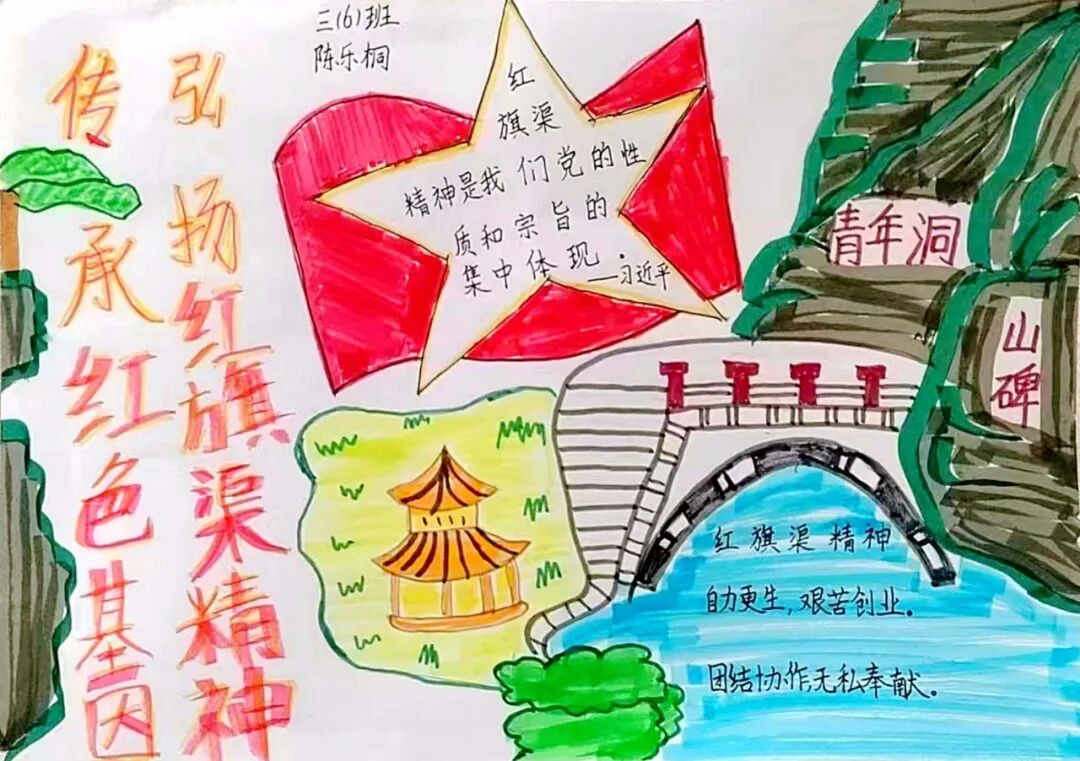 三(6)班
陈乐桐
弘扬红旗渠精神
传承红色基因
红
旗渠
精神是我们党的性
质和宗旨的
集中体现.
——习近平
青年洞
山碑
红旗渠精神
自力更生,艰苦创业。
团结协作无私奉献。